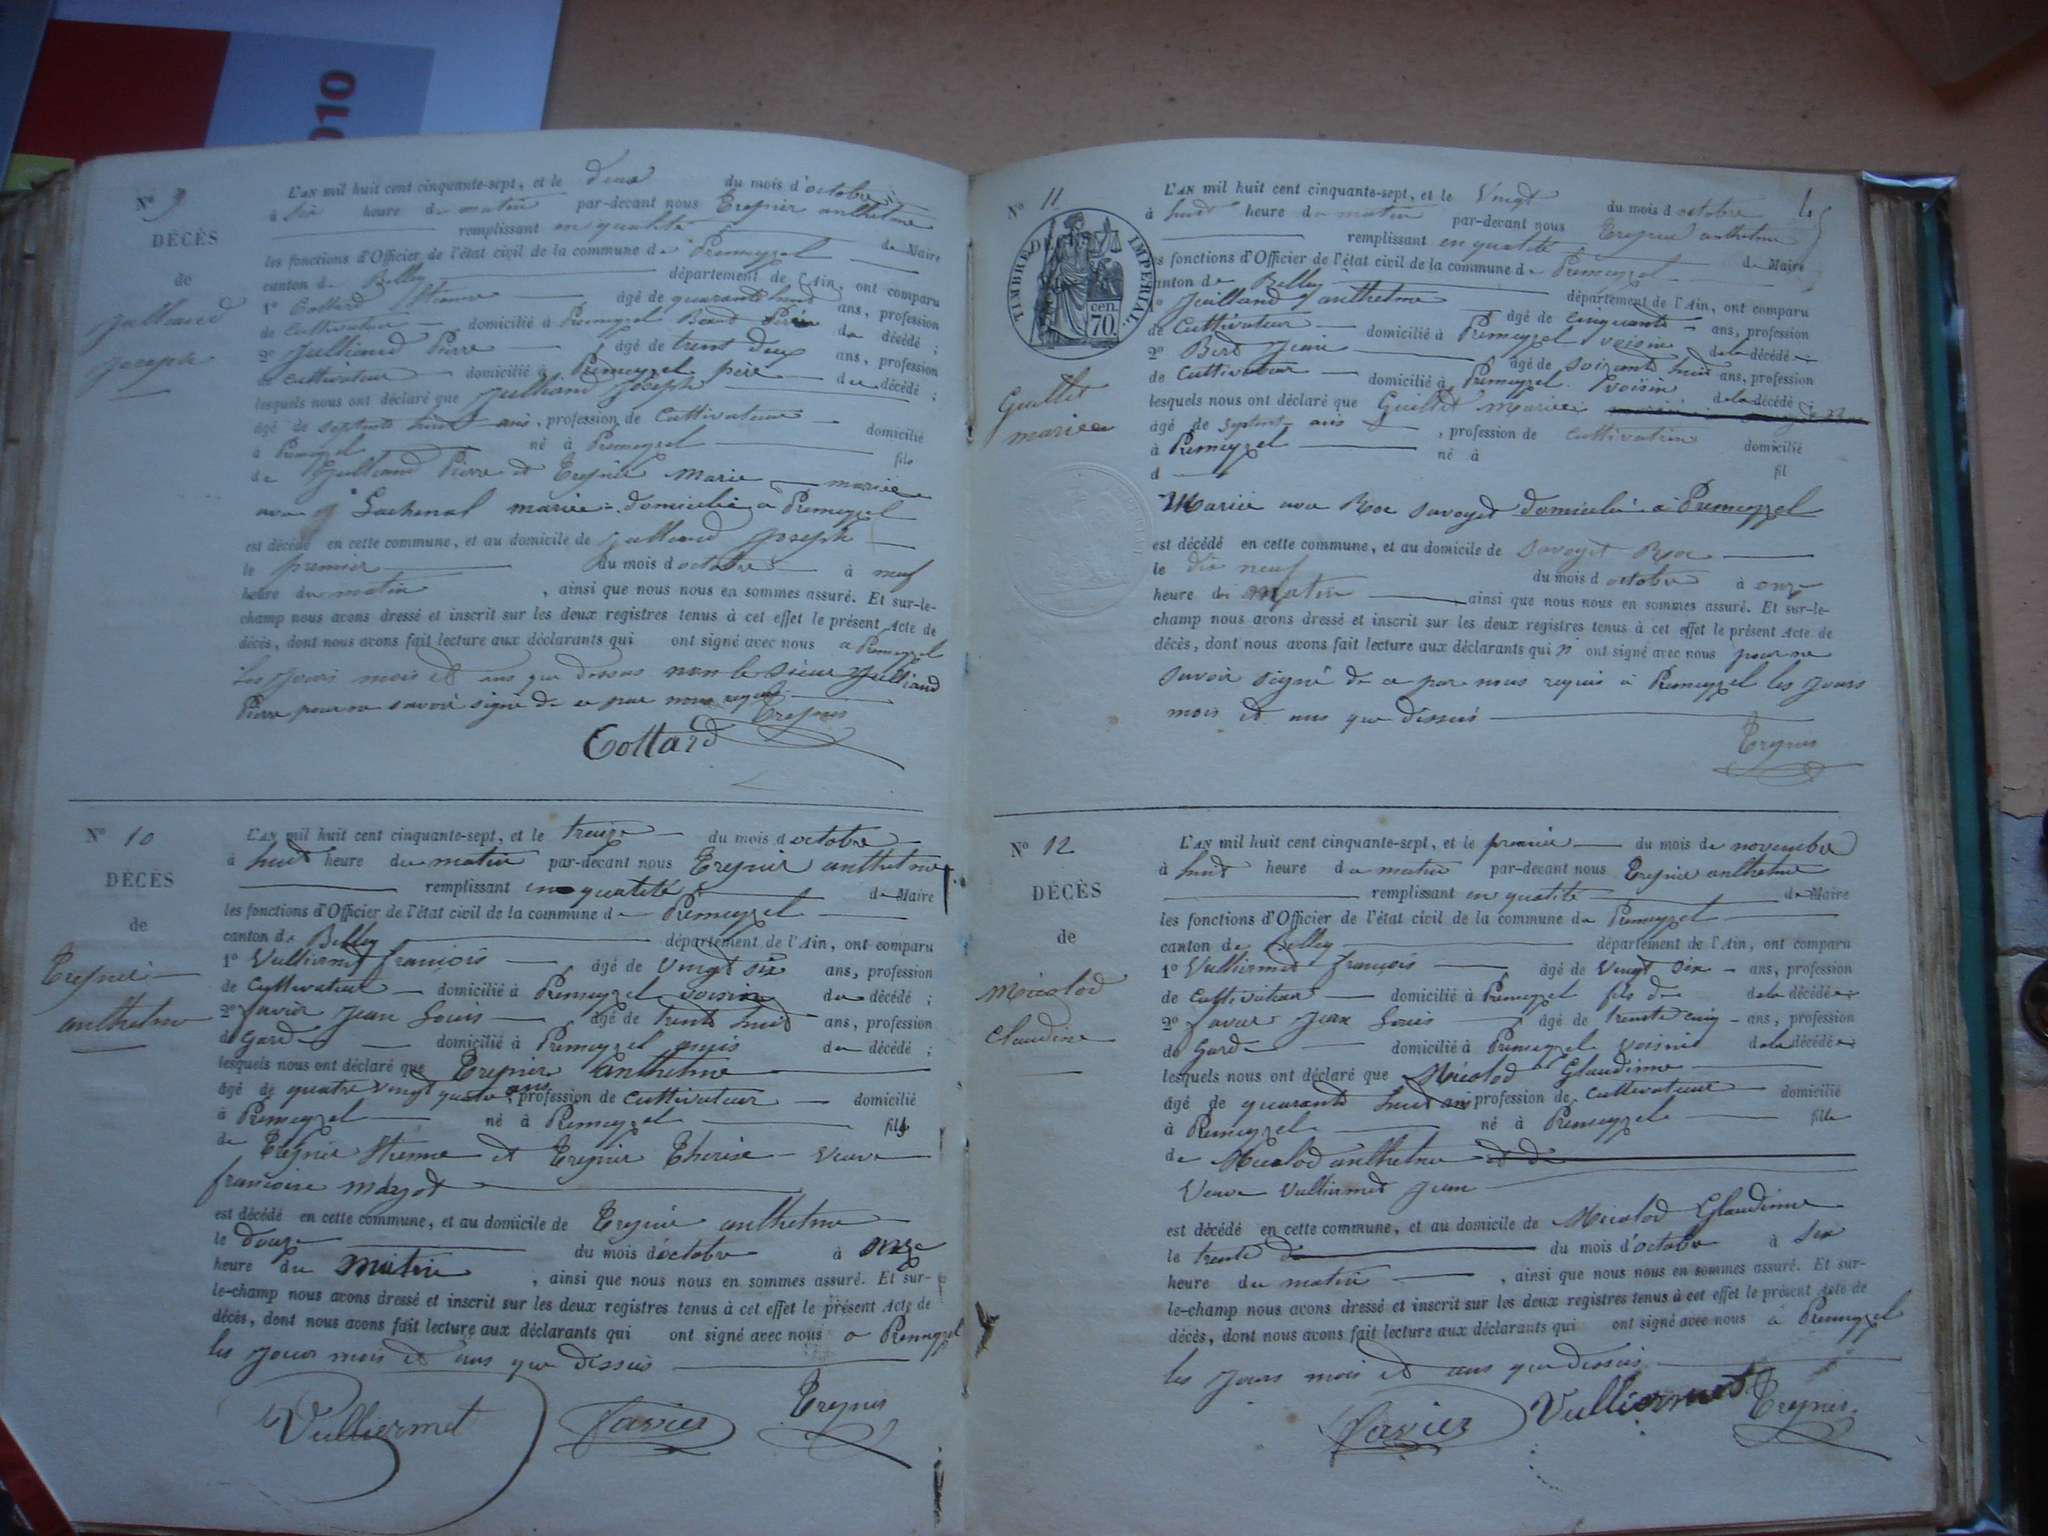 010
N° 9
DÉCÈS
de
Julliand
Joseph
L'AN mil huit cent cinquante-sept, et le deux du mois d'octobre
à six heure du matin par-devant nous Treynier anthelme
remplissant en qualité de Maire
les fonctions d'Officier de l'état civil de la commune de Premeyzel
canton de Belley département de l'Ain, ont comparu
1° Cottard Etienne âgé de quarante huit ans, profession
de Cultivateur domicilié à Premeyzel Beau du décédé ;
2° Julliand Pierre âgé de trent deux ans, profession
de cultivateur domicilié à Premeyzel père du décédé ;
lesquels nous ont déclaré que Julliand Joseph
âgé de septante huit ans, profession de Cultivateur domicilié
à Premeyzel né à Premeyzel fils
de Julliand Pierre et Treynier Marie mariée
avec Lachenal mariée domiciliée à Premeyzel
est décédé en cette commune, et au domicile de Julliand Joseph
le premier du mois d'octobre à neuf
heure du matin, ainsi que nous nous en sommes assuré. Et sur-le-
champ nous avons dressé et inscrit sur les deux registres tenus à cet effet le présent Acte de
décès, dont nous avons fait lecture aux déclarants qui ont signé avec nous a Premeyzel
les Jours mois et ans que dessus non le sieur Julliand
Pierre pour ne savoir signé de ce par nous requis
Treynier
Cottard
N° 10
DÉCÈS
de
Treynier
anthelme
L'AN mil huit cent cinquante-sept, et le treize du mois d'octobre
à huit heure du matin par-devant nous Treynier anthelme
remplissant en qualité de Maire
les fonctions d'Officier de l'état civil de la commune de Premeyzel
canton de Belley département de l'Ain, ont comparu
1° Vulliermet francois âgé de vingt six ans, profession
de Cultivateur domicilié à Premeyzel voisin du décédé ;
2° favier Jean Louis âgé de trente huit ans, profession
de Garde domicilié à Premeyzel du décédé ;
lesquels nous ont déclaré que Treynier anthelme
âgé de quatre vingt quatre ans, profession de cultivateur domicilié
à Premeyzel né à Premeyzel fils
de Treynier Etienne et Treynier Therese veuve
francoise
est décédé en cette commune, et au domicile de Treynier anthelme
le douze du mois d'octobre à onze
heure du matin, ainsi que nous nous en sommes assuré. Et sur-
le-champ nous avons dressé et inscrit sur les deux registres tenus à cet effet le présent Acte de
décès, dont nous avons fait lecture aux déclarants qui ont signé avec nous a Premeyzel
les Jours mois et ans que dessus
Vulliermet Favier Treynier
N° 11
TIMBRE IMPÉRIAL
70 cen.
Guillet
mariee
L'AN mil huit cent cinquante-sept, et le Vingt du mois d octobre
à huit heure du matin par-devant nous Treynier anthelme
remplissant en qualité de Maire
les fonctions d'Officier de l'état civil de la commune de Premeyzel
canton de Belley département de l'Ain, ont comparu
1° Juilland anthelme âgé de cinquante ans, profession
de Cultivateur domicilié à Premeyzel voisin de la décédée ;
2° Jean âgé de soixante huit ans, profession
de Cultivateur domicilié à Premeyzel voisin de la décédée ;
lesquels nous ont déclaré que Guillet mariee
âgé de septente ans, profession de cultivatrice domicilié
à Premeyzel né à fil
d
Mariée avec Roc Savoyet domicilié à Premeyzel
est décédé en cette commune, et au domicile de Savoyet Roc
le dix neuf du mois d octobre à onze
heure du matin ainsi que nous nous en sommes assuré. Et sur-le-
champ nous avons dressé et inscrit sur les deux registres tenus à cet effet le présent Acte de
décès, dont nous avons fait lecture aux déclarants qui n'ont signé avec nous pour ne
savoir signé de ce par nous requis à Premeyzel les Jours
mois et ans que dessus
Treynier
N° 12
DÉCÈS
de
Micolod
Claudine
L'AN mil huit cent cinquante-sept, et le premier du mois de novembre
à huit heure du matin par-devant nous Treynier anthelme
remplissant en qualité de Maire
les fonctions d'Officier de l'état civil de la commune de Premeyzel
canton de Belley département de l'Ain, ont comparu
1° Vulliermet françois âgé de vingt six ans, profession
de Cultivateur domicilié à Premeyzel fils de de la décédée ;
2° favier Jean Louis âgé de trente cinq ans, profession
de Garde domicilié à Premeyzel voisin de la décédée
lesquels nous ont déclaré que Micolod Glaudine
âgé de quarante huit ans profession de Cultivateur domicilié
à Premeyzel né à Premeyzel fille
de Micolod anthelme et de
Veuve Vulliermet Jean
est décédé en cette commune, et au domicile de Micolod Glaudine
le trente du mois d'octobre à six
heure du matin, ainsi que nous nous en sommes assuré. Et sur-
le-champ nous avons dressé et inscrit sur les deux registres tenus à cet effet le présent Acte de
décès, dont nous avons fait lecture aux déclarants qui ont signé avec nous à Premeyzel
les Jours mois et ans que dessus
Favier Vulliermet Treynier